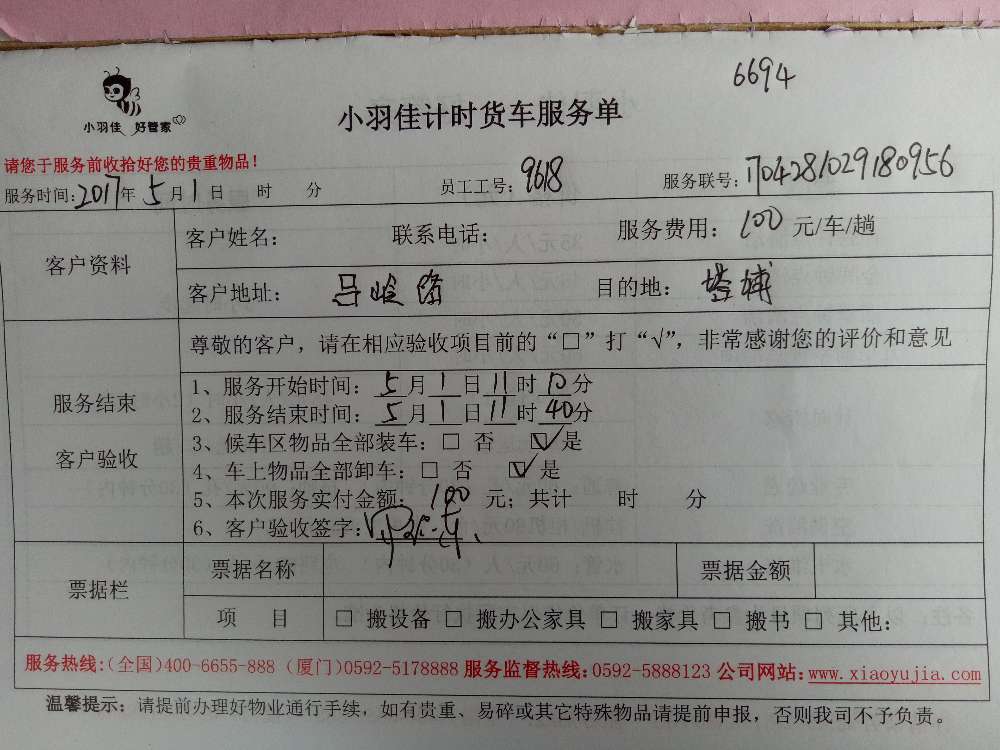 6694
小羽佳 好管家
小羽佳计时货车服务单
请您于服务前收拾好您的贵重物品！
服务时间：2017年5月1日 时 分 员工工号：9618 服务联号：170428102918095​6
客户资料
客户姓名： 联系电话： 服务费用：100元/车/趟
客户地址：吕岭路 目的地：塔埔
尊敬的客户，请在相应验收项目前的“□”打“√”，非常感谢您的评价和意见
服务结束
客户验收
1、服务开始时间：5月1日11时10分
2、服务结束时间：5月1日11时40分
3、候车区物品全部装车：□ 否 ☑是
4、车上物品全部卸车：□ 否 ☑是
5、本次服务实付金额：100 元；共计 时 分
6、客户验收签字：
票据栏
票据名称 票据金额
项 目 □ 搬设备 □ 搬办公家具 □ 搬家具 □ 搬书 □ 其他：
服务热线：（全国）400-6655-888（厦门）0592-5178888 服务监督热线：0592-5888123 公司网站：www.xiaoyujia.com
温馨提示：请提前办理好物业通行手续，如有贵重、易碎或其它特殊物品请提前申报，否则我司不予负责。